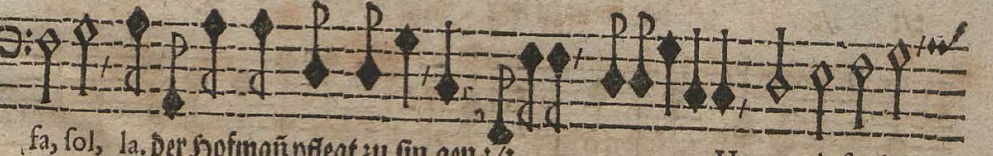 fa, sol, la. der Hofmañ pflegt zu sin gen :/: